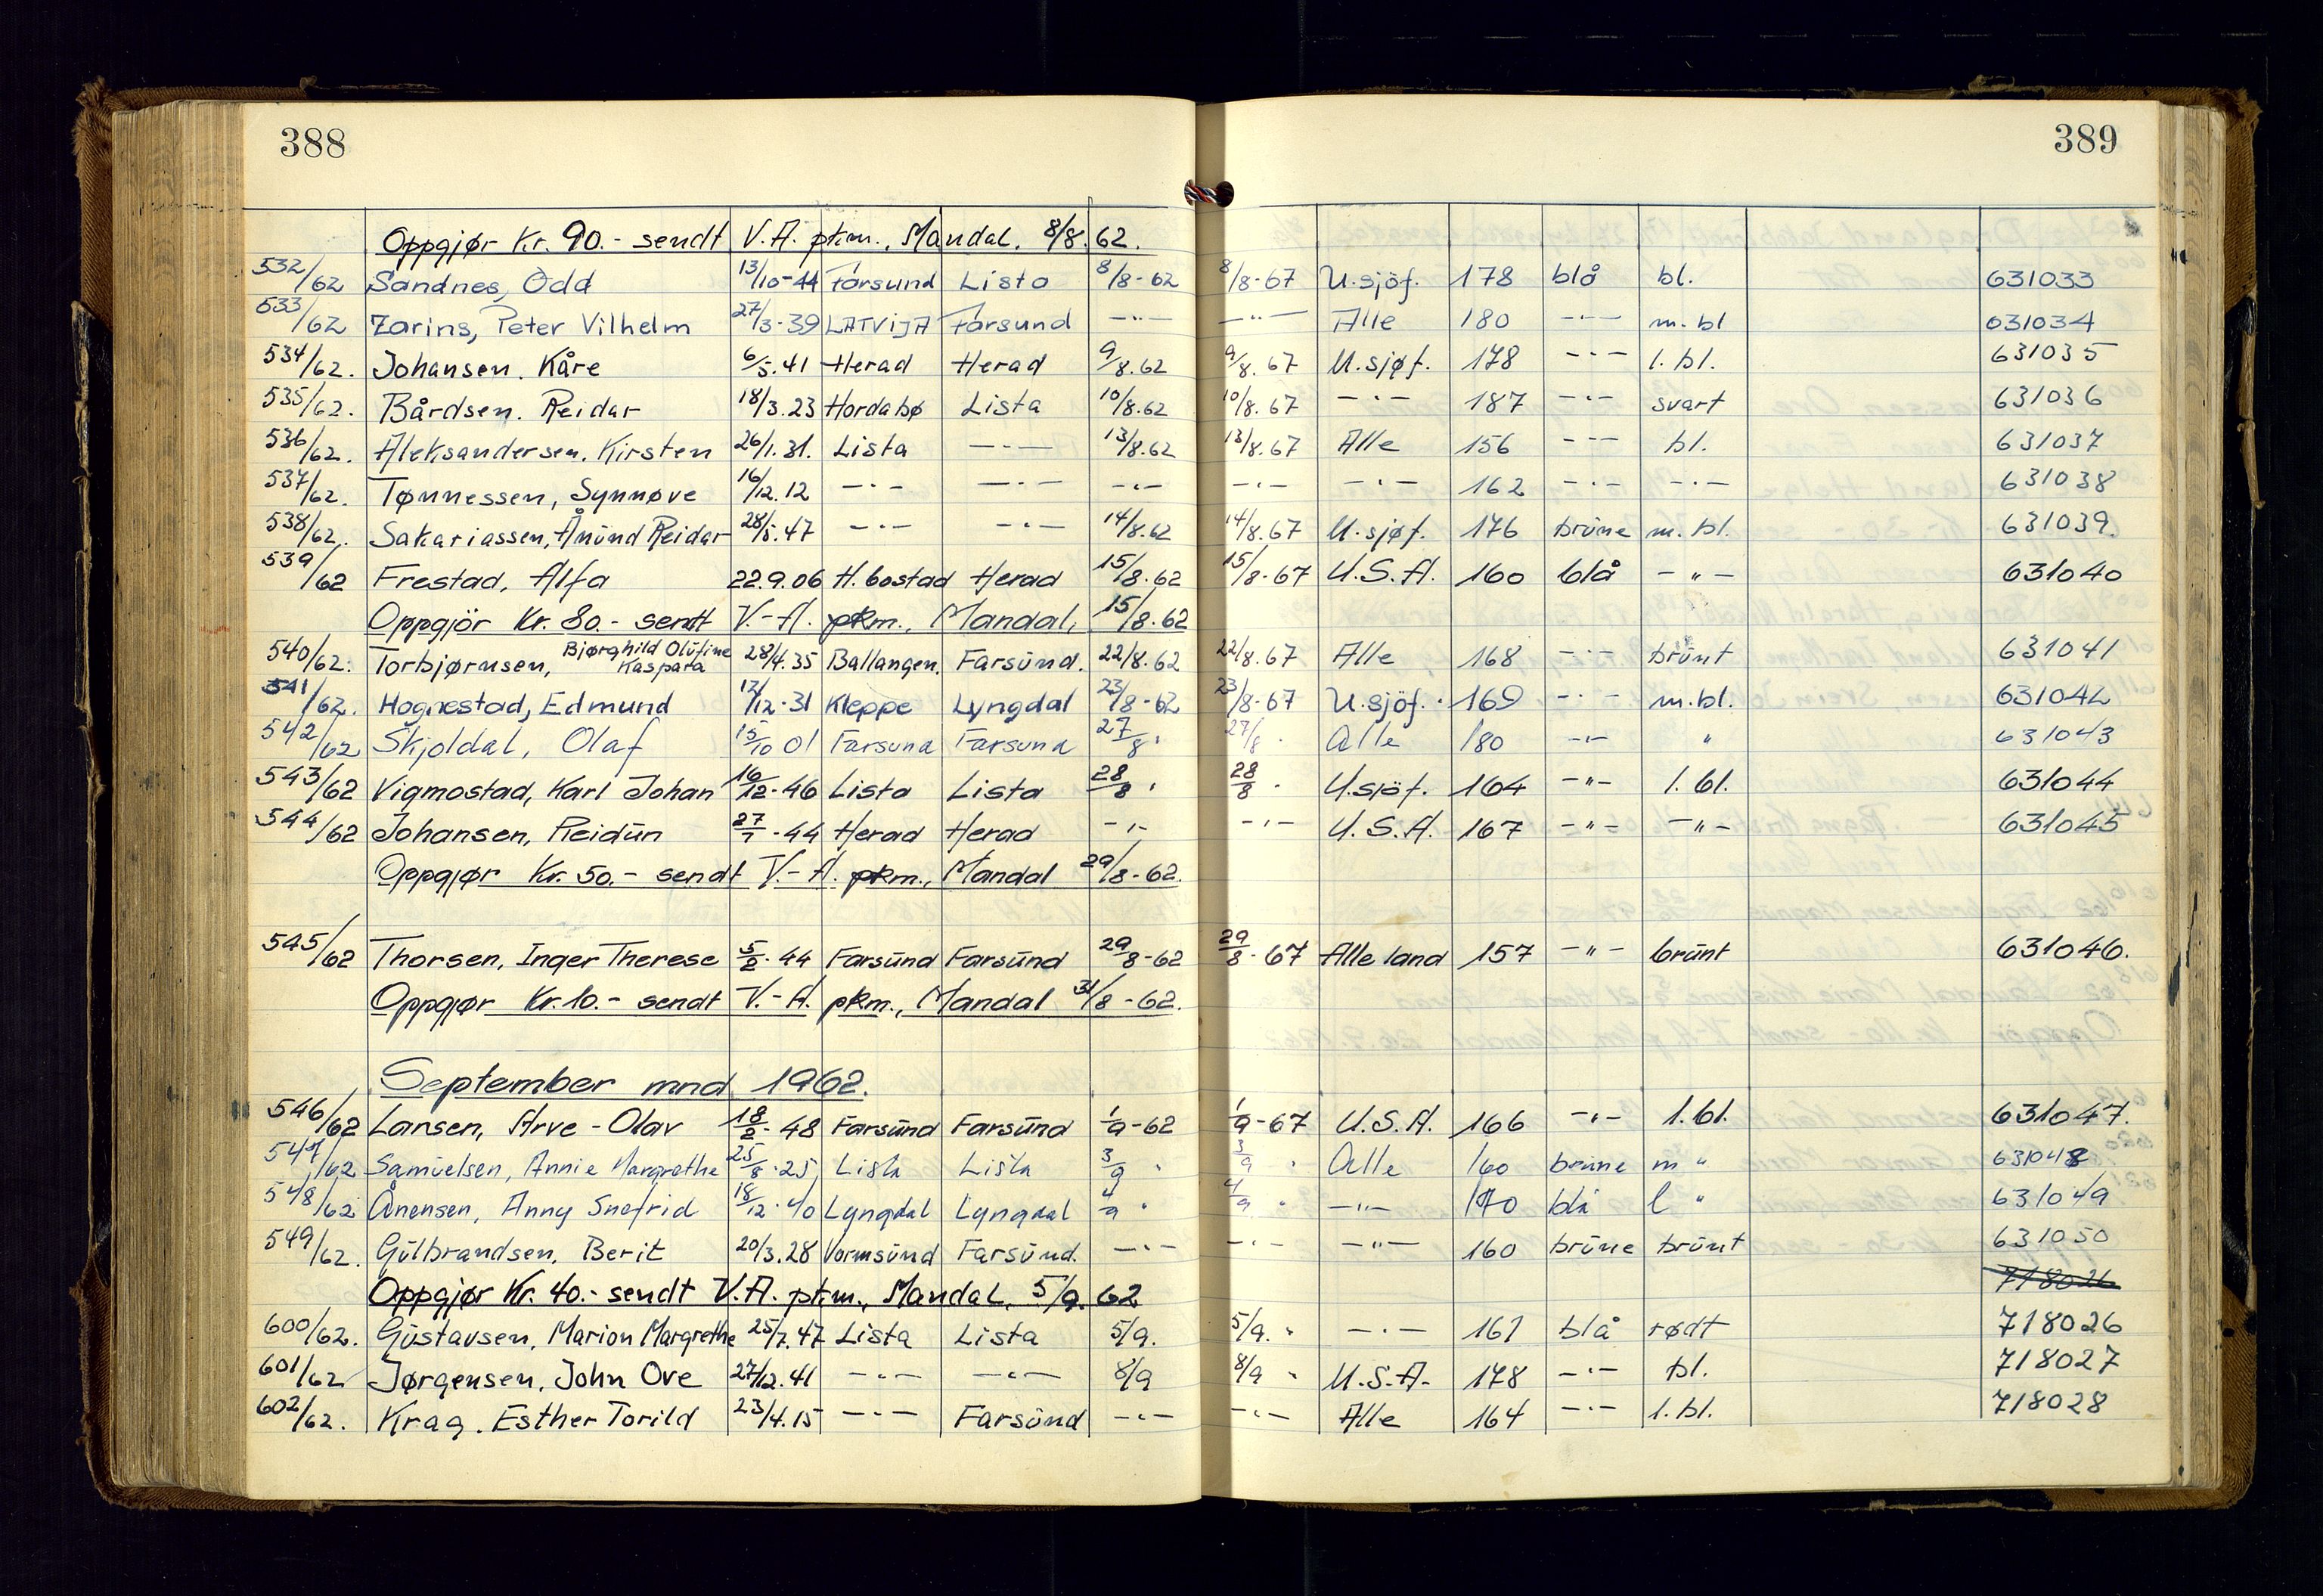 388
389
Oppgjør Kr. 90.- sendt V.A. pkm., Mandal, 8/8.62.
532/62 Sandnes, Odd 13/10-44 Farsund Lista 8/8-62 8/8-67 U.sjöf. 178 blå bl. 631033
533/62 Zarins, Peter Vilhelm 27/3-39 LATVIJA Farsund -"- -"- Alle 180 -"- m.bl 631034
534/62. Johansen. Kåre 6/5.41 Herad Herad 9/8.62 9/8.67 U.sjøf. 178 -"- l.bl. 631035
535/62. Bårdsen. Reidar 18/3.23 Hordabø Lista 10/8.62 10/8.67 -"- 187 -"- svart 631036
536/62. Aleksandersen. Kirsten 26/1.31. Lista -"- 13/8.62 13/8.67 Alle 156 -"- bl. 631037
537/62. Tønnessen, Synnøve 16/12.12 -"- -"- -"- -"- -"- 162 -"- -"- 631038
538/62. Sakariassen, Ånund Reidar 28/5.47 -"- -"- 14/8.62 14/8.67 U.sjøf. 176 brune m.bl. 631039
539/62 Frestad, Alfa 22.9.06 H.bostad Herad 15/8.62 15/8-67 U.S.A. 160 blå -"- 631040
Oppgjör Kr. 80.- sendt V.-A. pkm., Mandal, 15/8.62
540/62. Torbjørnsen, Bjørghild Olufine Kaspara 28/4.35 Ballangen. Farsund. 22/8.62 22/8.67 Alle 168 -"- brunt 631041
541/62. Hognestad, Edmund 12/12-31 Kleppe Lyngdal 23/8-62 23/8-67 U.sjöf. 169 -"- m.bl. 631042
542/62 Skjoldal, Olaf 15/10 01 Farsund Farsund 27/8 " 27/8 " Alle 180 -"- " 631043
543/62 Vigmostad, Karl Johan 16/12-46 Lista Lista 28/8 " 28/8 " U.sjöf. 164 -"- l.bl. 631044
544/62 Johansen, Reidun 27/7-44 Herad Herad -"- -"- U.S.A. 167 -"- -"- 631045
Oppgjør Kr. 50.- sendt V.-A. pkm., Mandal 29/8-62.
545/62 Thorsen, Inger Therese 5/2-44 Farsund Farsund 29/8-62 29/8-67 Alle land 157 -"- brunt 631046.
Oppgjør Kr.10.- sendt V.-A. pkm., Mandal 31/8-62.
September mnd. 1962.
546/62 Larsen, Arve-Olav 18/2-48 Farsund Farsund 1/9-62 1/9-67 U.S.A. 166 -"- l.bl. 631047.
547/62 Samuelsen, Annie Margrethe 25/8-25 Lista Lista 3/9 " 3/9 " Alle 160 brune m " 631048
548/62 Ånensen, Anny Snefrid 18/12.40 Lyngdal Lyngdal 4/9 " 4/9 " -"- 170 blå l " 631049
549/62. Gulbrandsen, Berit 20/3.28 Vormsund Farsund. -"- -"- -"- 160 brune brunt 631050
Oppgjør Kr. 40.- sendt V.A. pkm., Mandal, 5/9.62 718026
600/62. Gustavsen, Marion Margrethe 25/7.47 Lista Lista 5/9. 5/9. " -"- 161 blå rødt 718026
601/62 Jørgensen, John Ove 27/12.41 -"- -"- 8/9 8/9 " U.S.A. 178 -"- bl. 718027
602/62. Krag. Esther Torild 23/4.15 -"- Farsund -"- -"- Alle 164 -"- l.bl. 718028